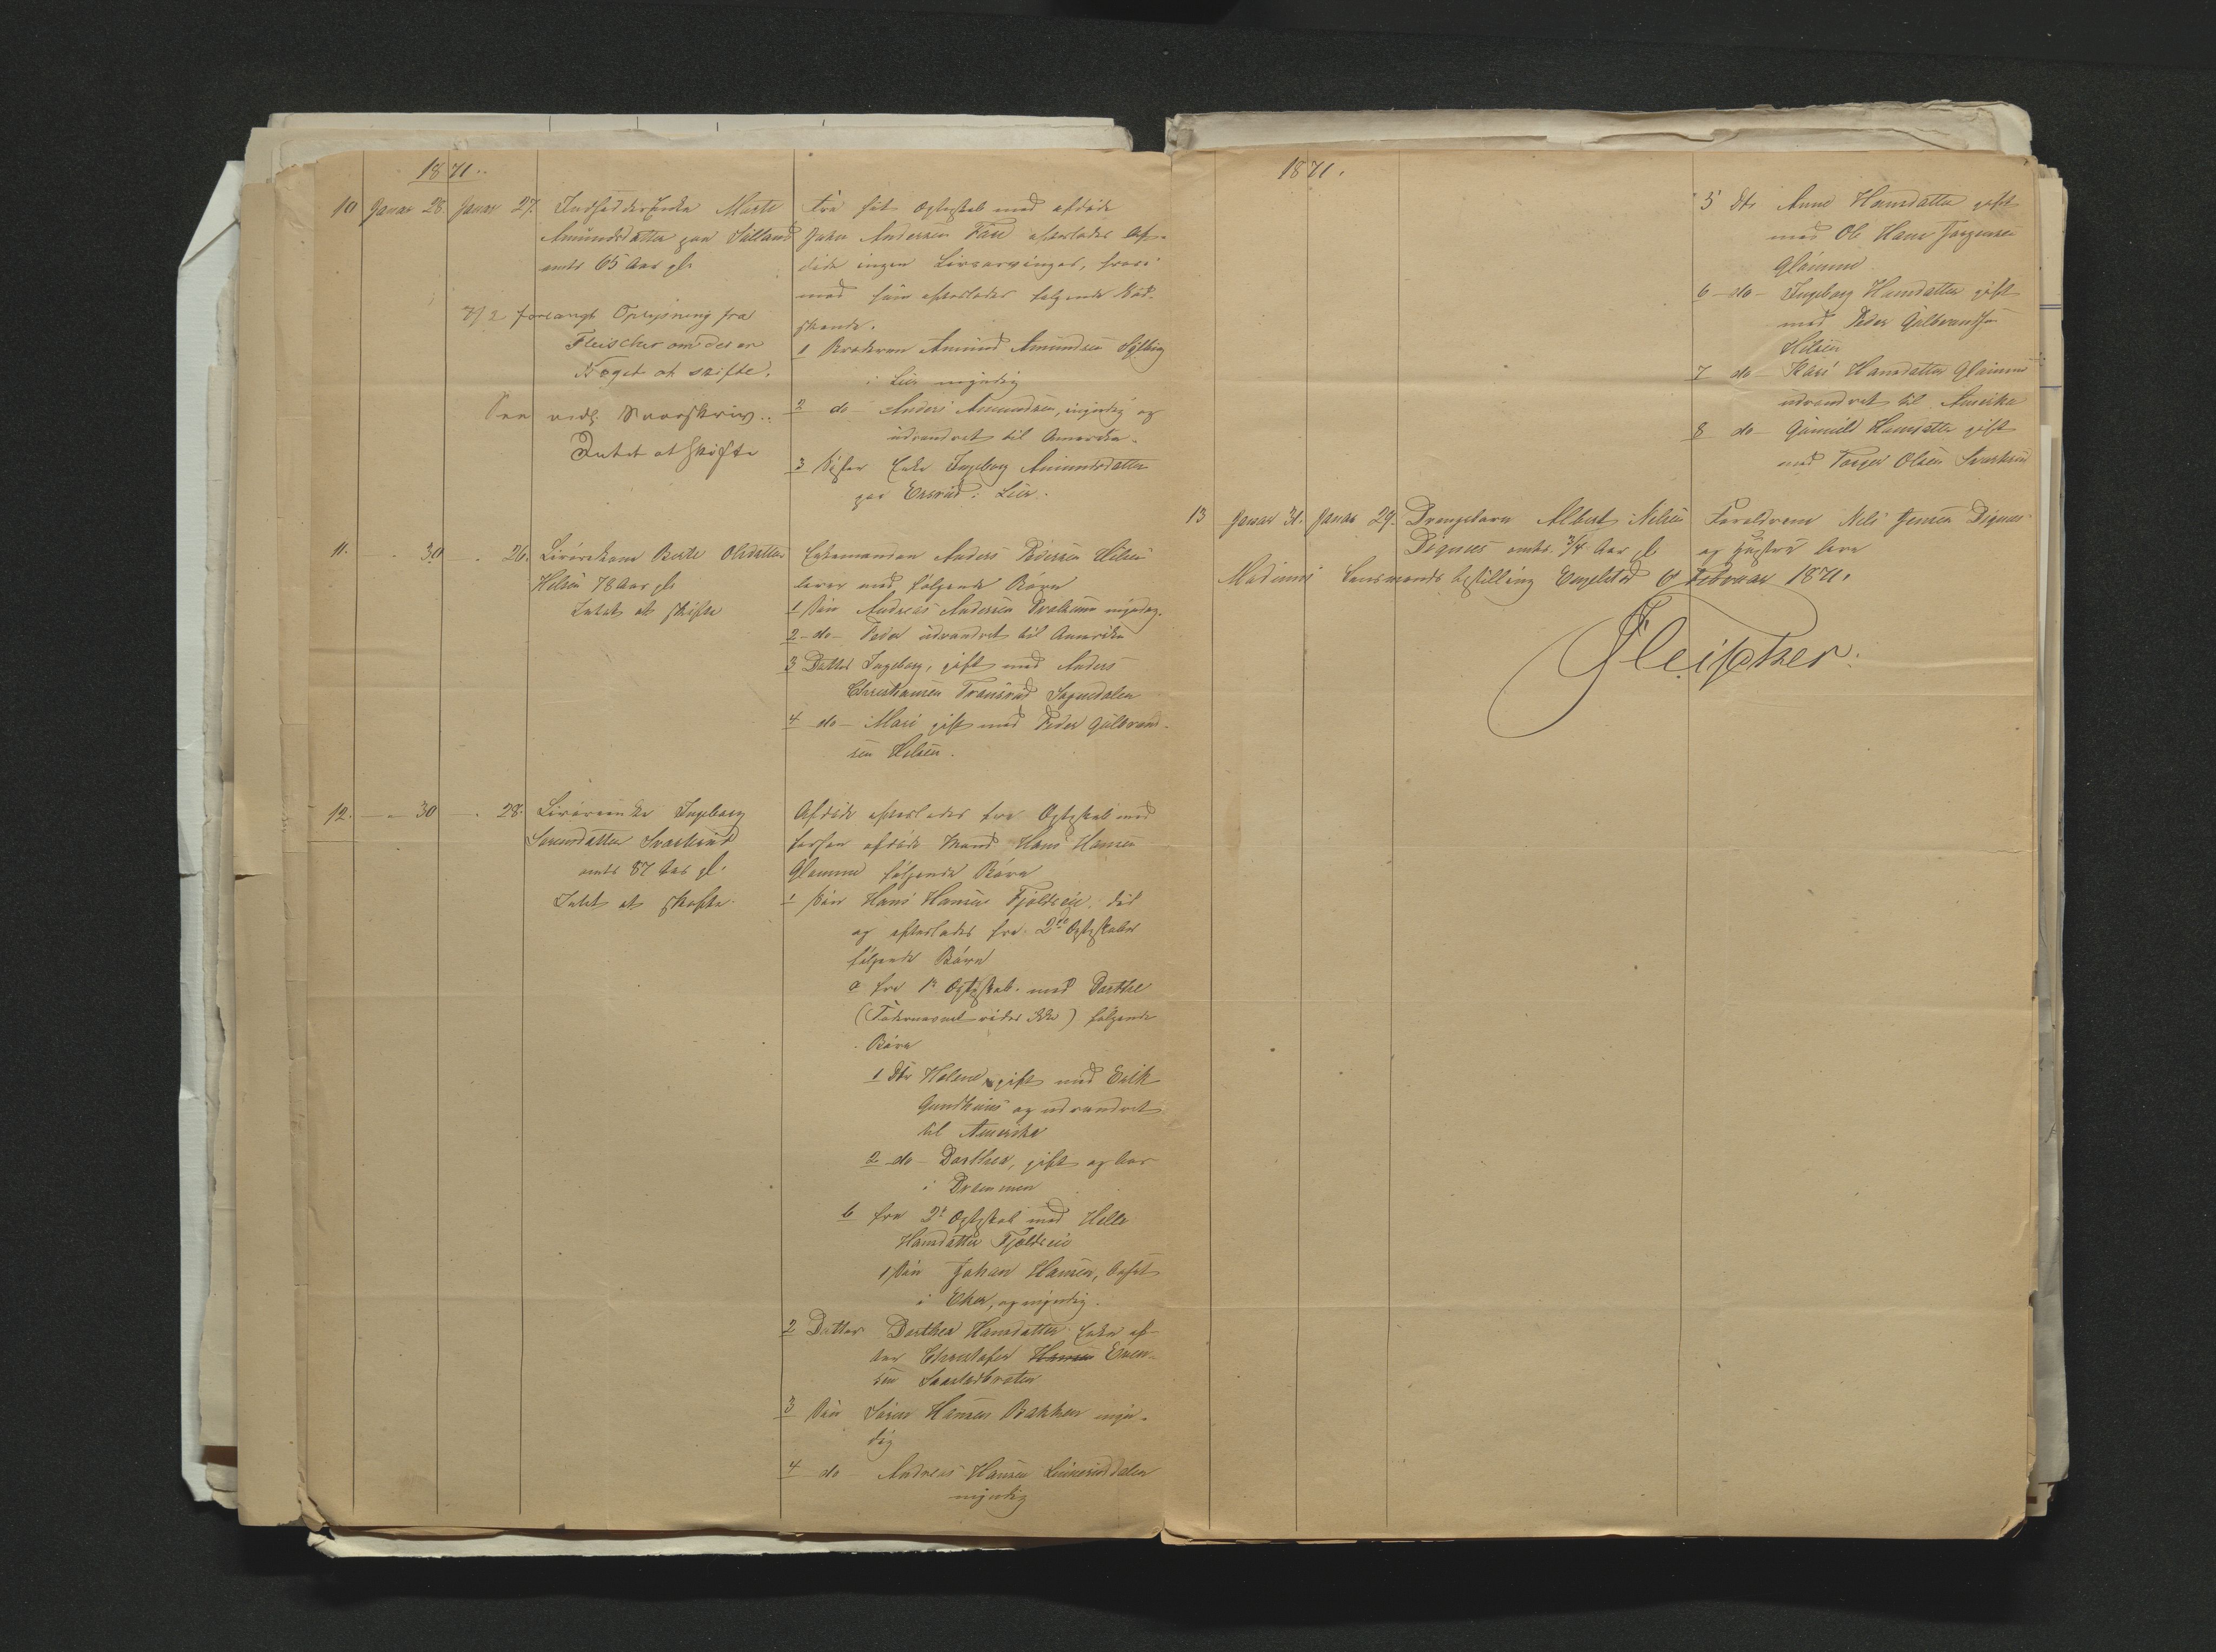 1871.
10 Januar 28. Januar 27. Indsidderenke Marte
Amundsdatter paa
omtr 65 Aar gl.
7/2 forlangt Oplysning fra
Fleischer om der er
Noget at skifte.
Svar
Intet at skifte
Fra sit Ægteskab med afdøde
John Andersen efterlader Af-
døde ingen Livsarvinger, hvori
mod hun efterlader følgende Sød-
skende.
1 Broderen Amund Amundsen
i Lier myndig
2 do Anders Amundsen, myndig og
udvandret til Amerika.
3 Søster Enke Ingeborg Amundsdatter
paa i Lier.
11. - 30 - 26. Berte Olsdatter
Helsen 78 Aar gl.
Intet at skifte
Enkemanden Anders Pedersen Helsen
lever med følgende Børn
1 Søn Andreas Andersen myndig.
2 - do - Peder udvandret til Amerika
3 Datter Ingeborg, gift med Anders
Christiansen
4 do - Mari gift med Peder Gulbrand-
sen Helsen.
12. - 30 - 28. Ingeborg
Sørensdatter
omtr 87 Aar gl.
Intet at skifte.
Afdøde efterlader fra Ægteskab med
forhen afdøde Mand Hans Hansen
Glamme følgende Børn
1 Søn Hans Hansen død
og efterlader fra 2de Ægteskaber
følgende Børn
a fra 1ste Ægteskab med Dorthe
(Fadernavnet vides ikke) følgende
Børn
1 Dtr Helene, gift med Erik
og udvandret
til Amerika
2 do - Dorthea, gift og bor
i Drammen
b fra 2det Ægteskab med Helle
Hansdatter
1 Søn Johan Hansen, bosat
i Eker, og myndig.
2 Datter Dorthea Hansdatter Enke ef-
ter Christofer Hansen Even-
sen
3 Søn Søren Hansen Bakken myn-
dig
4 do - Andreas Hansen
myndig
1871.
5 Dtr Anne Hansdatter gift
med Ole Hans Jørgensen
Glamme
6 - do - Ingeborg Hansdatter gift
med Peder Gulbrandsen
Helsen
7 do - Kari Hansdatter Glamme
udvandret til Amerika
8 do - Gunnild Hansdatter gift
med Torger Olsen
13 Januar 31. Januar 29. Drengebarn Albert Nilsen
omtr. 3/4 Aar gl.
Forældrene Nils Jensen
og Hustru leve
Modums Lensmands bestilling Engelstad 6 Februar 1871.
Fleischer.